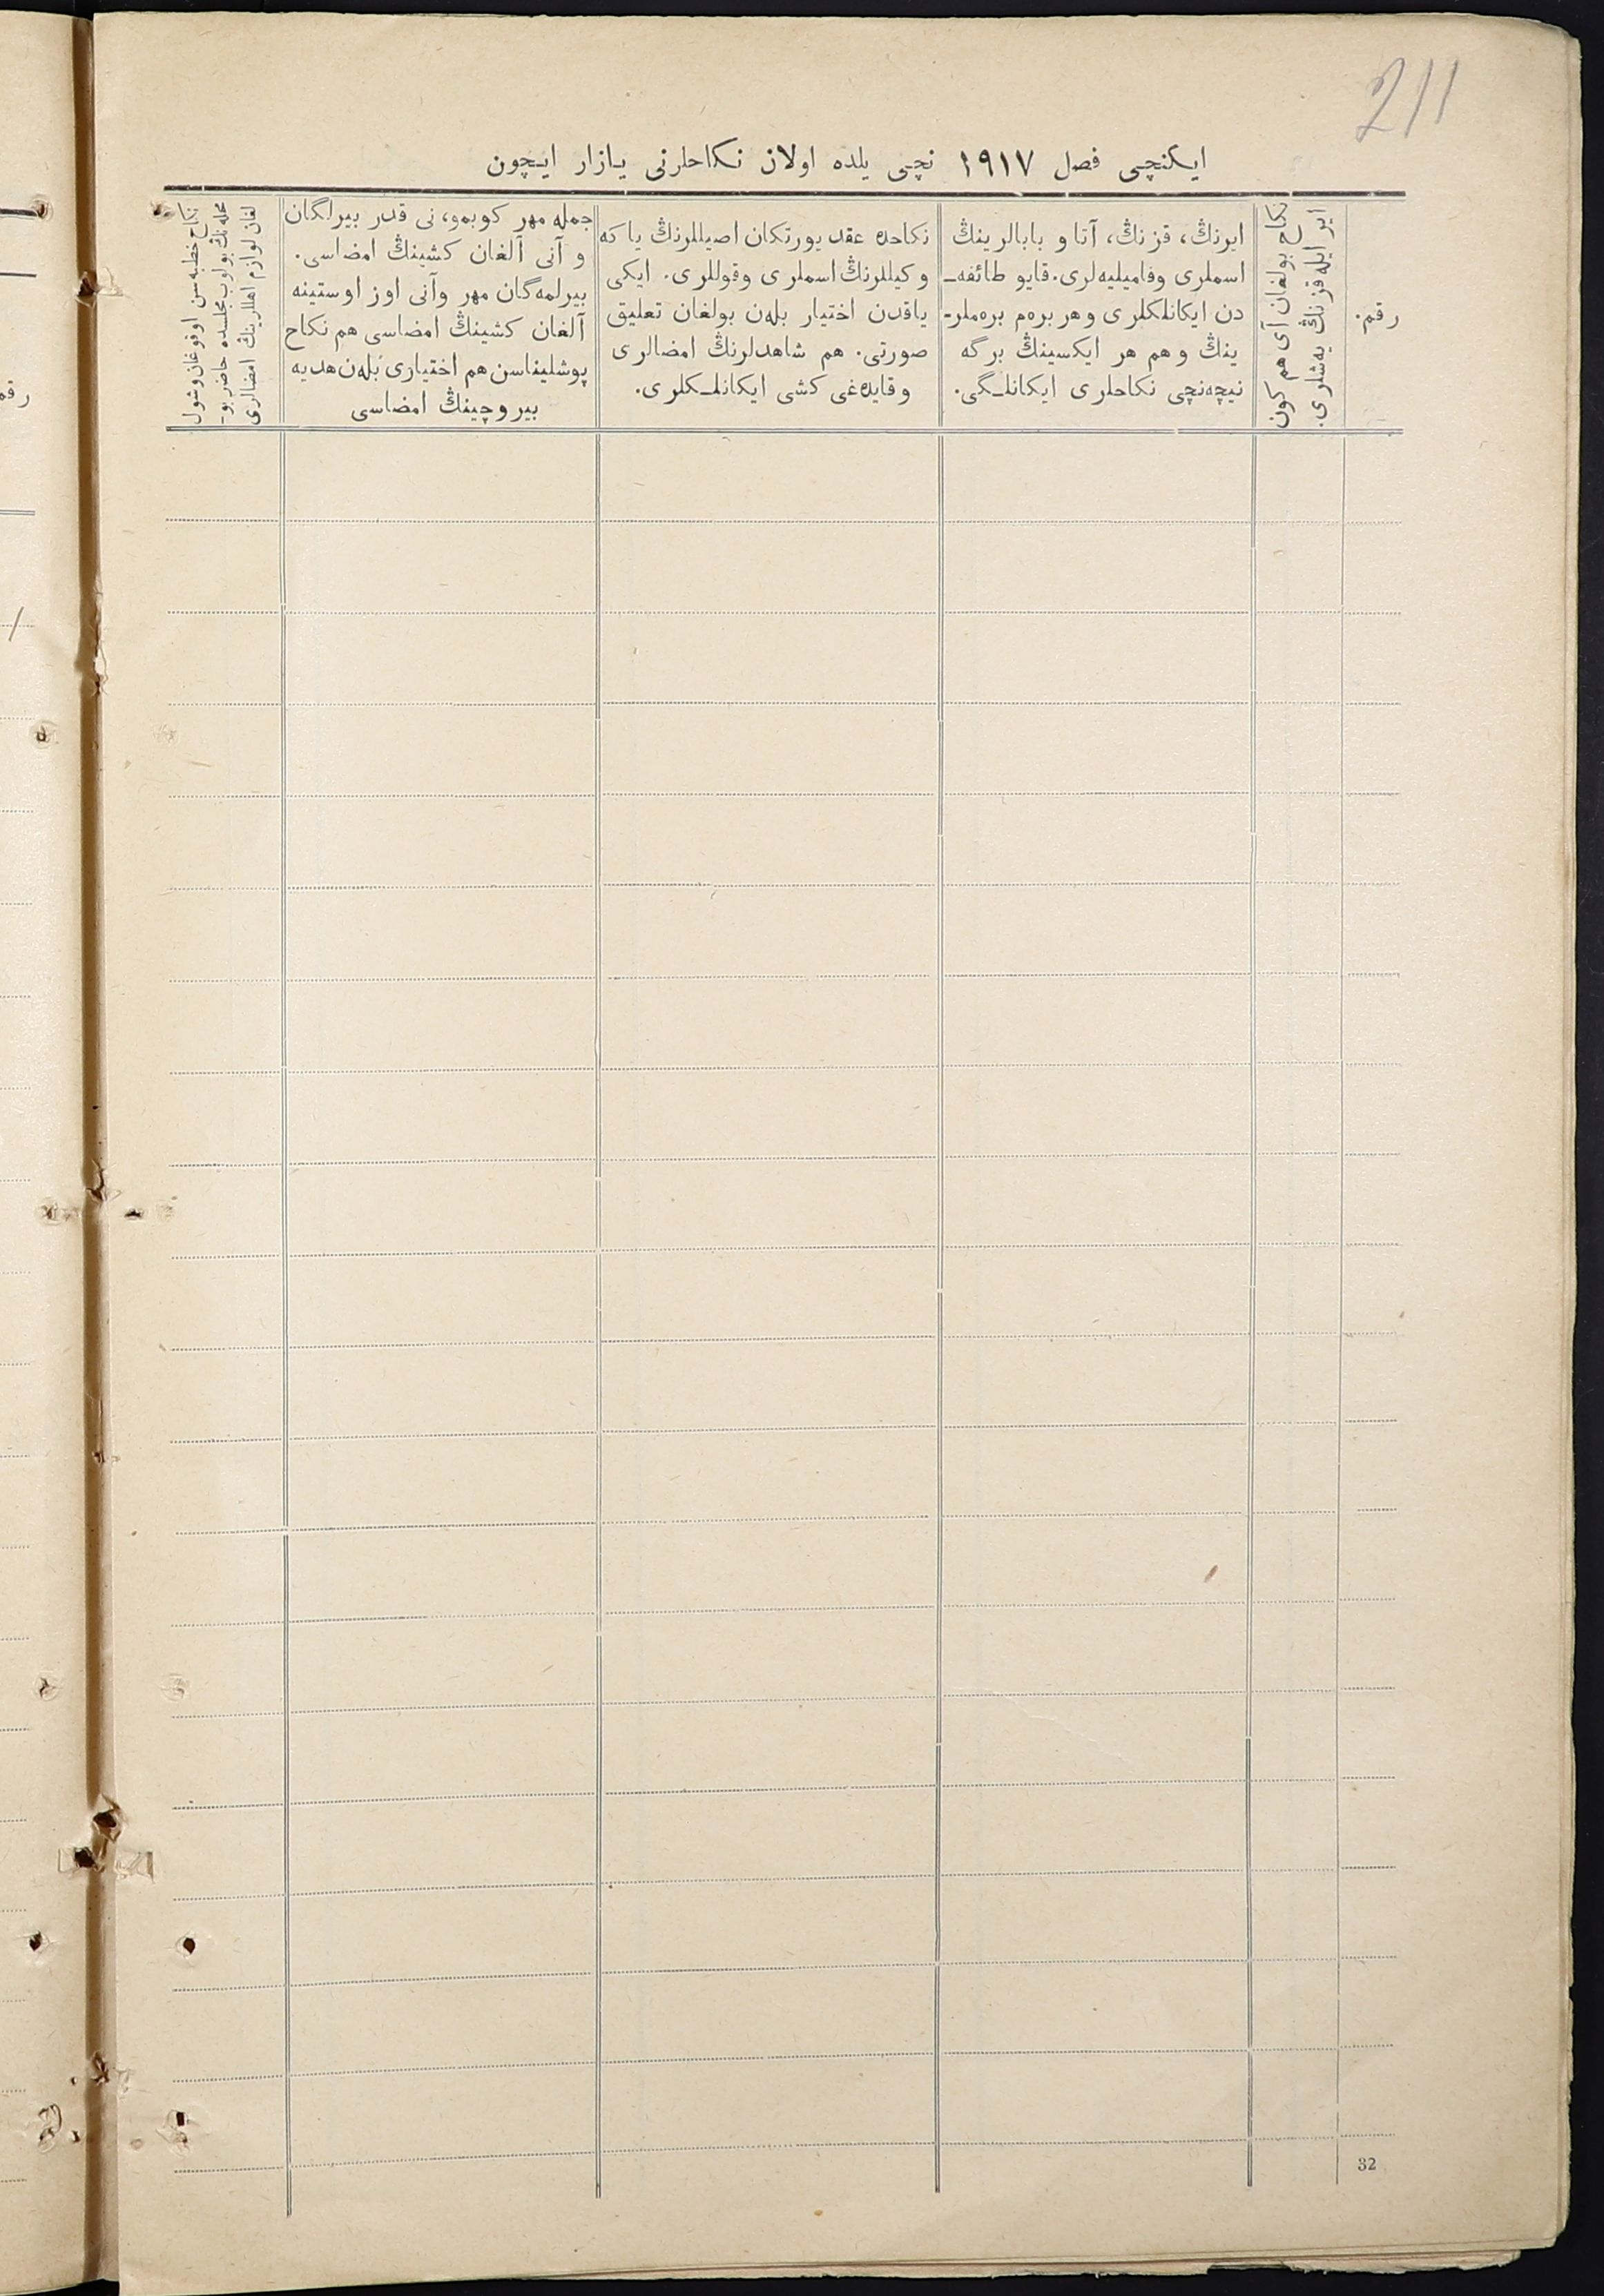 211
ایکنچی فصل ۱۹۱۷ نچی یلده اولان نکاحلرنی یازار ایچون
رقم.
نکاح بولغان آی هم کون
ایر ایله قزنڭ یه‌شلری.
ایرنڭ، قزنڭ، آتا و بابالرینڭ
اسملری وفامیلیه‌لری. قایو طائفه‌ـ
دن ایکانلکلری و هر بره‌م بره‌ملرـ
ینڭ و هم هر ایکسینڭ برگه
نیچه‌نچی نکاحلری ایکانلـگی.
نکاحده عقد یورتکان اصیللرنڭ یا که
وکیللرنڭ اسملری وقوللری. ایکی
یاقدن اختیار بله‌ن بولغان تعلیق
صورتی. هم شاهدلرنڭ امضالری
وقایده‌غی کشی ایکانلـکلری.
جمله مهر کوبمو، نی قدر بیرلگان
و آنی آلغان کشینڭ امضاسی.
بیرلمه‌گان مهر وآنی اوز اوستینه
آلغان کشینڭ امضاسی هم نکاح
پوشلیناسن هم اختیاری بله‌ن هدیه
بیروچینڭ امضاسی
نکاح خطبه‌سن اوقوغان وشول
محله‌نڭ بولوب مجلسده حاضر بوـ
لغان لوازم اهللارینڭ امضالری
32
رقم